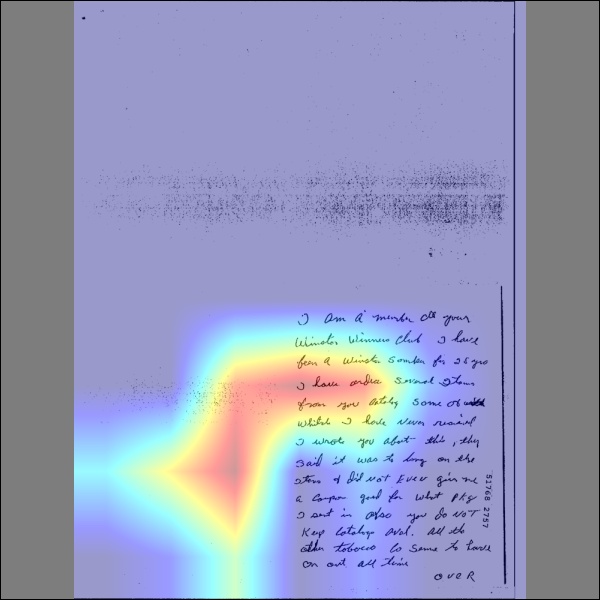 I am a member of your
Winston Winners Club I have
been a Winston Somker for 25 yrs
I have order several Items
from you catalog some of
which I have never received
I wrote you about this, they
said it was to long on the
Items I did not Even give me
a coupon good for what PKg
I sent in also you do NOT
Keep catalogs aval. All the
other tobacco Co seme to have
on out all time
OVER
51768 2757